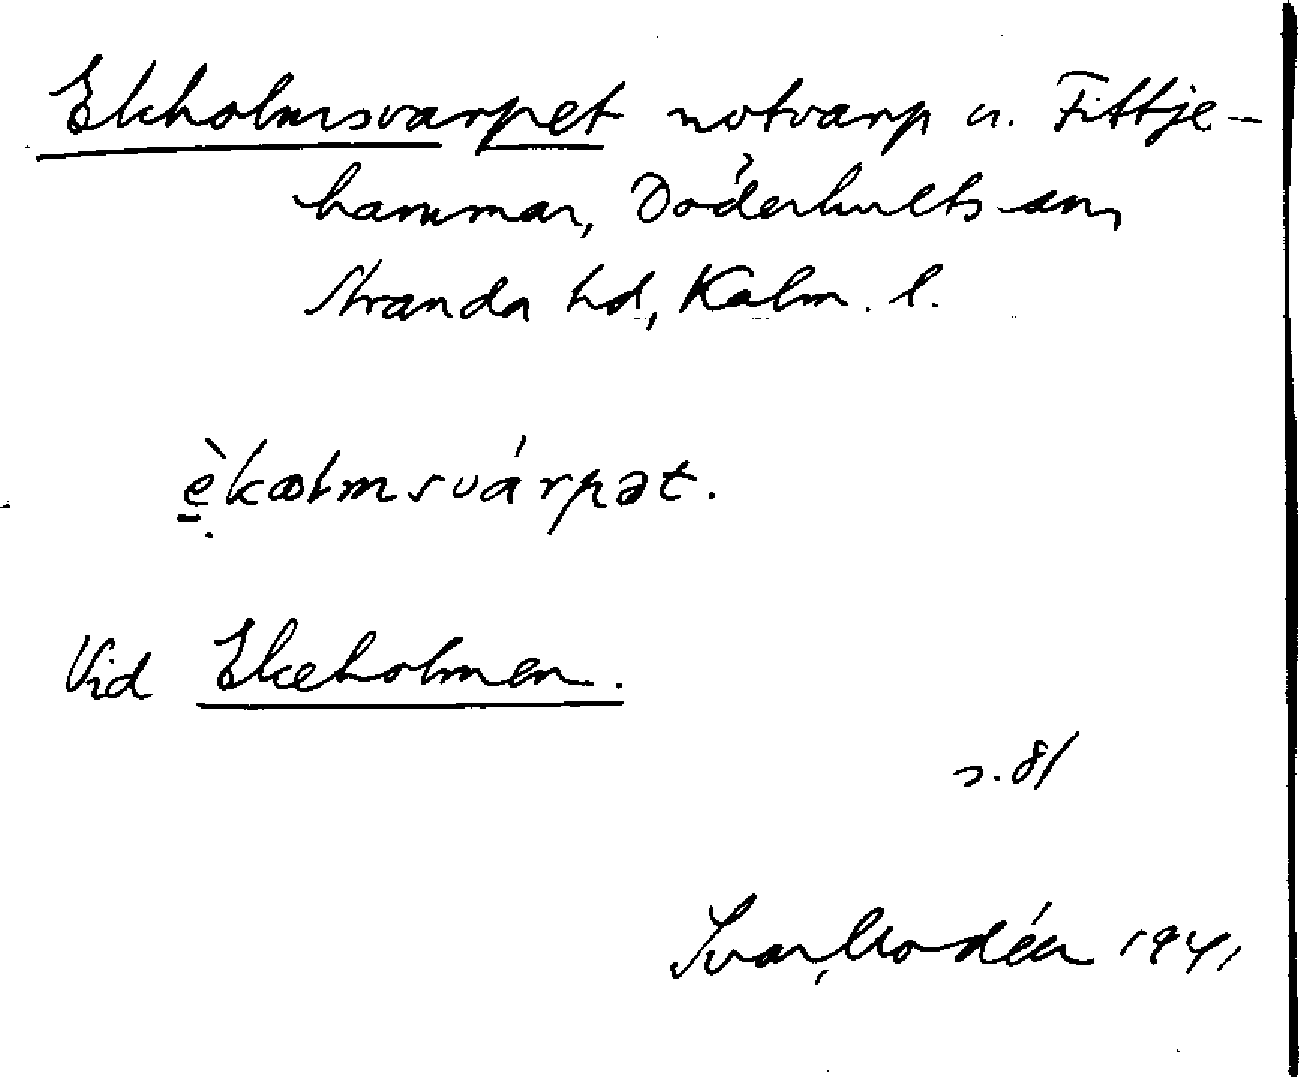 Ekholmsvarpet notvarp u. Fittje-
hammar, Döderhults sn,
Stranda hd, Kalm. l.
èkɷlmsvárpət.
Vid Ekeholmen.
s. 81
Ivar Modéer 1941